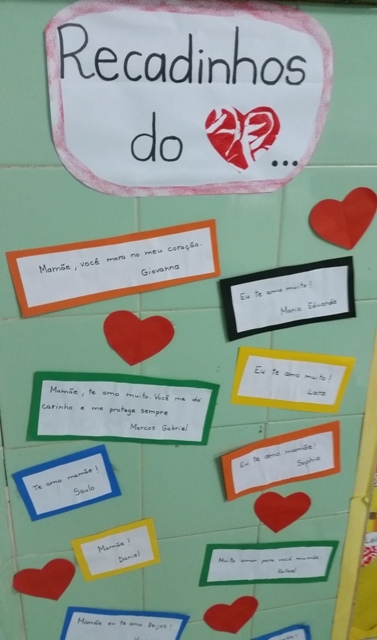 Recadinhos
do ...
Mamãe, você mora no meu coração.
Giovanna
Eu te amo muito!
Maria Eduarda
Eu te amo muito!
Lara
Mamãe, te amo muito. Você me dá
carinho e me protege sempre
Marcos Gabriel
Eu te amo mamãe!
Sophia
Te amo mamãe!
Saulo
Mamãe!
Daniel
Muito amor para você mamãe
Rafael
Mamãe eu te amo. Beijos!